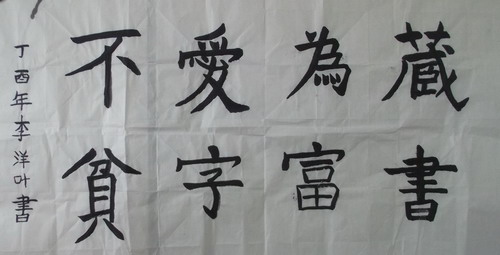 蔵書
為富
愛字
不貧
丁酉年李洋叶書